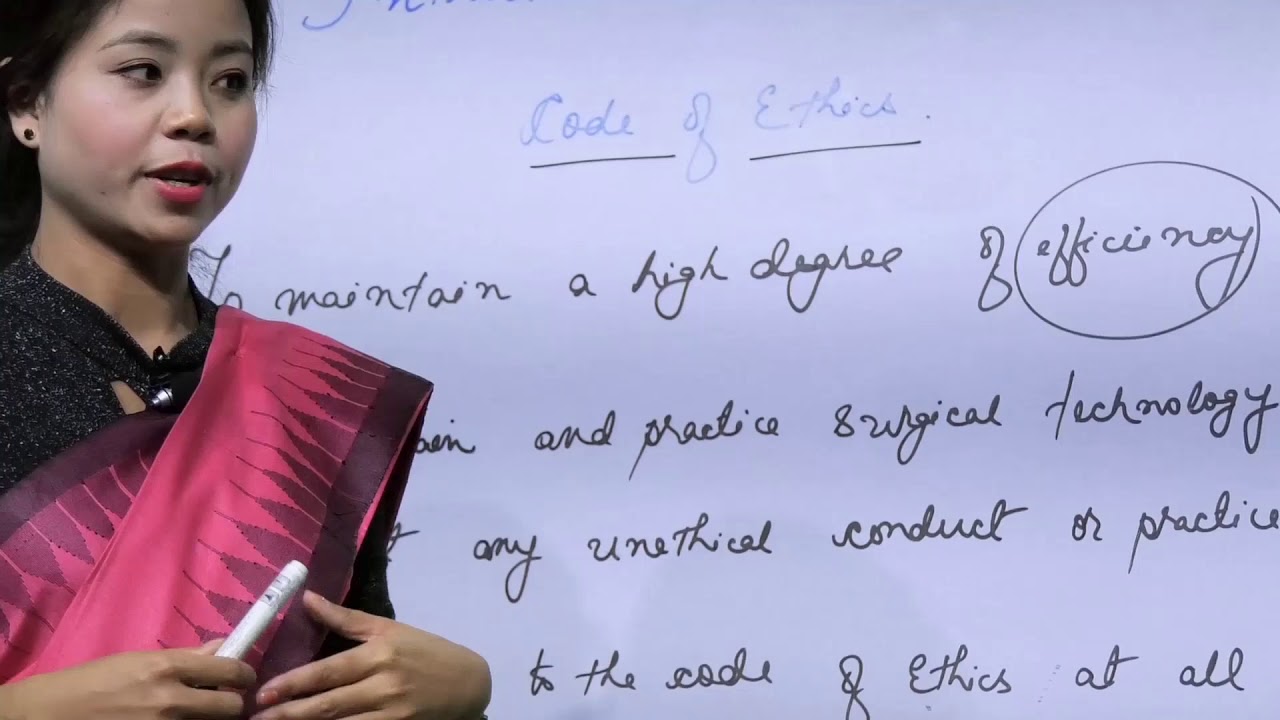 Code of Ethics.
To maintain a high degree of efficiency
and practice surgical technology
any unethical conduct or practice
to the code of Ethics at all